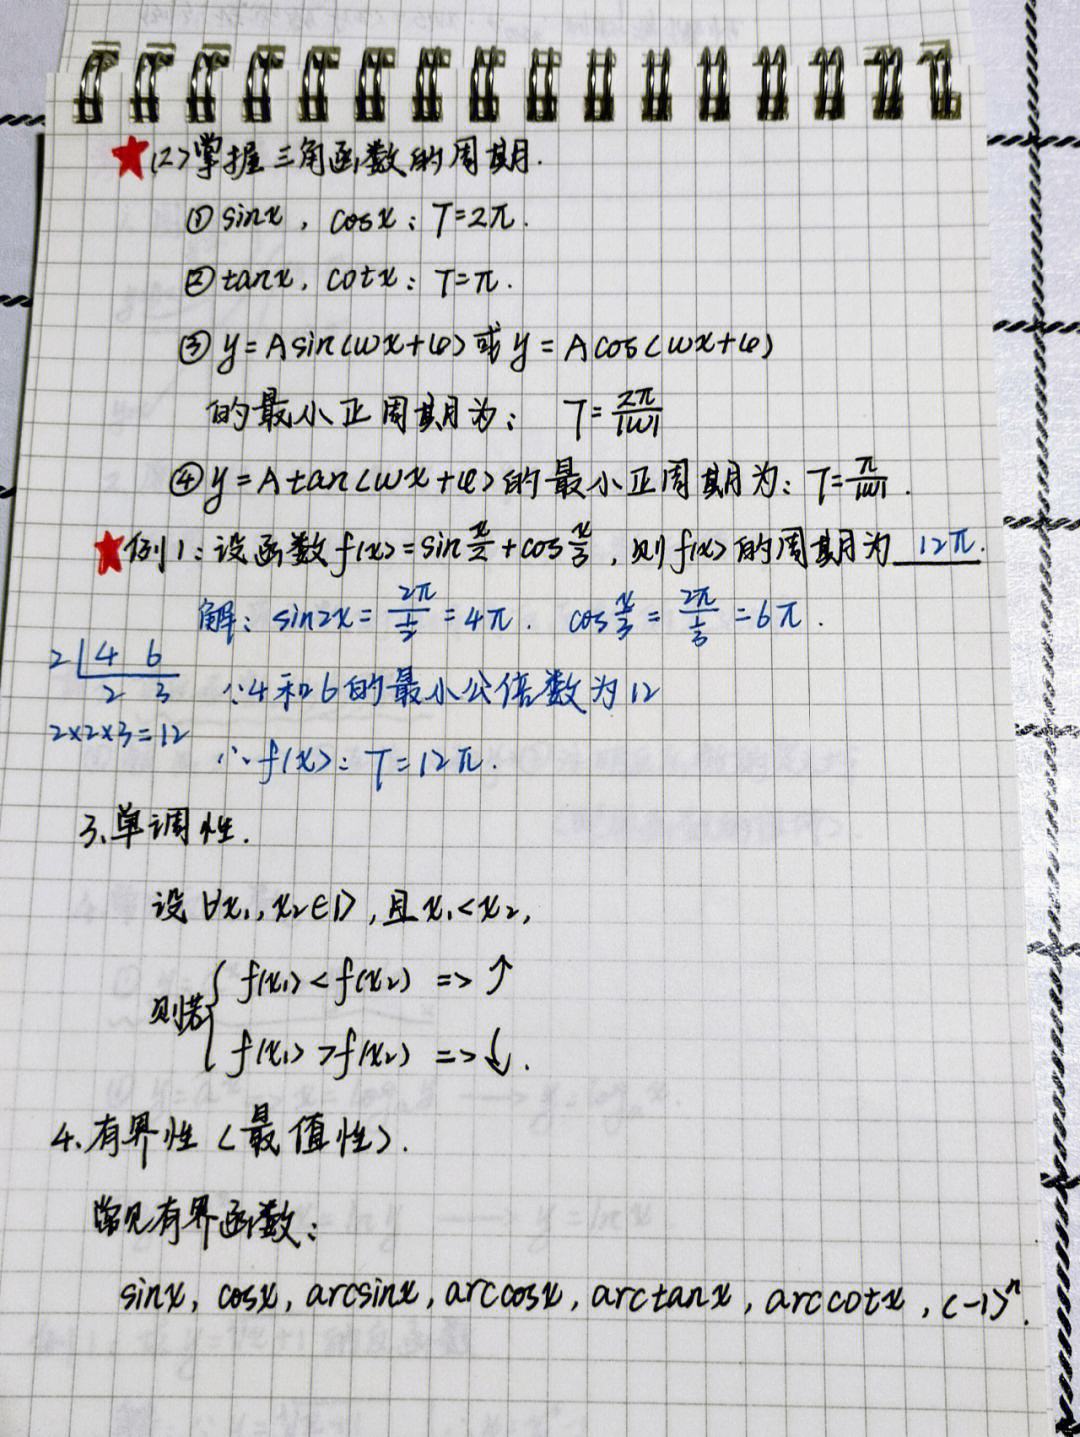 ★(2)掌握三角函数的周期.
① sinx, cosx: T=2π.
② tanx, cotx: T=π.
③ y=Asin(ωx+φ)或y=Acos(ωx+φ)
的最小正周期为: T=2π/|ω|
④ y=Atan(ωx+φ)的最小正周期为: T=π/|ω|.
★例1:设函数f(x)=sin x/2+cos x/3,则f(x)的周期为 12π.
解: sin2x=2π/(1/2)=4π. cos x/3=2π/(1/3)=6π.
2|4 6
2 3 ∵4和6的最小公倍数为12
2×2×3=12
∴f(x): T=12π.
3、单调性.
设∀x₁,x₂∈D,且x₁<x₂,
则若{ f(x₁)<f(x₂) => ↑
f(x₁)>f(x₂) => ↓.
4、有界性(最值性).
常见有界函数:
sinx, cosx, arcsinx, arccosx, arctanx, arccotx, (-1)ⁿ.